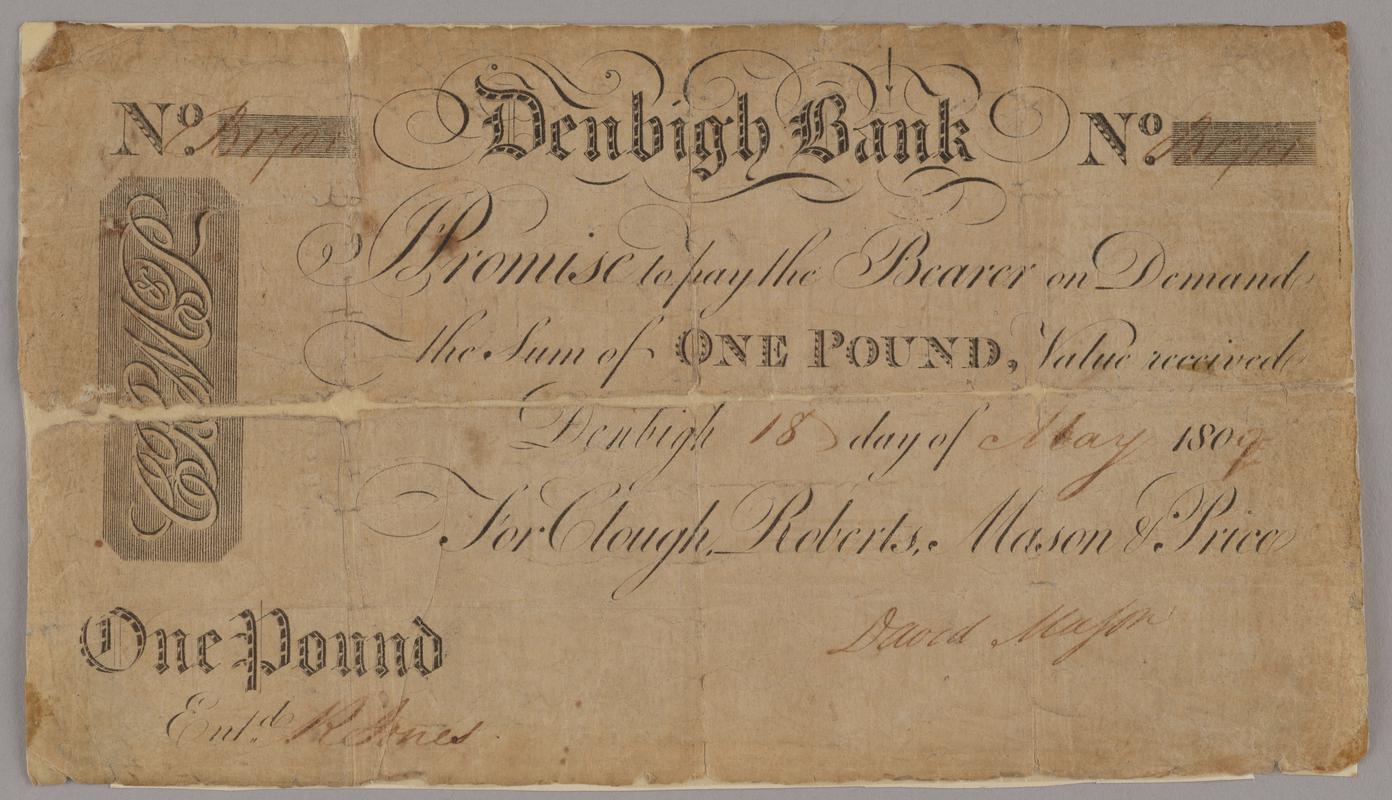 No. Denbigh Bank No.
I Promise to pay the Bearer on Demand
the Sum of ONE POUND, Value received
Denbigh 18 day of May 1809
For Clough, Roberts, Mason & Price
David Mason
One Pound
Entd. R Jones
CRM&P